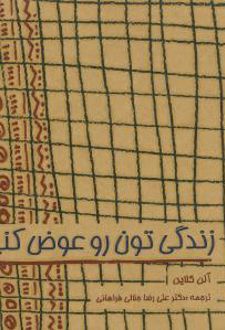 زندگی تون رو عوض کنی
آلن کلاین
ترجمه: دکتر علی رضا جلالی فراهانی